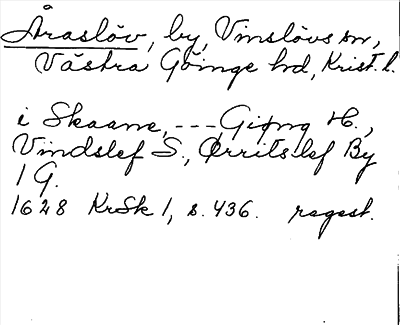 Åraslöv, by, Vinslövs sn,
Västra Göinge hd, Krist. l.
i Skaane, ---, Giøng H.,
Vindslef S., Ørritslef By
1 G.
1628 KrSk 1, s. 436. regest.